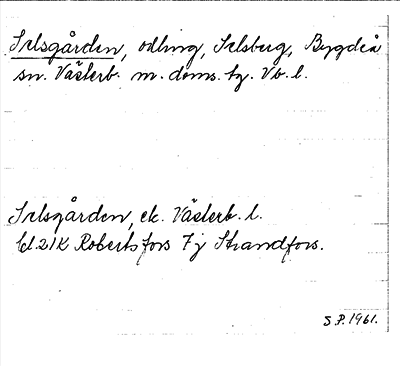 Selsgården, odling, Selsberg, Bygdeå
sn. Västerb. m. doms. hg. Vb. l.
Selsgården, ek. Västerb. l.
bl. 21K Robertsfors 7j Strandfors.
S.P. 1961.